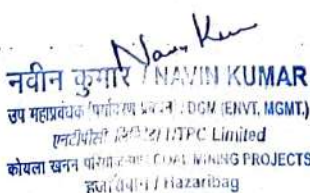 Navin Kum
नवीन कुमार / NAVIN KUMAR
उप महाप्रबंधक / DGM (ENVT. MGMT.)
एनटीपीसी NTPC Limited
कोयला खनन COAL MINING PROJECTS
हजारीबाग / Hazaribag